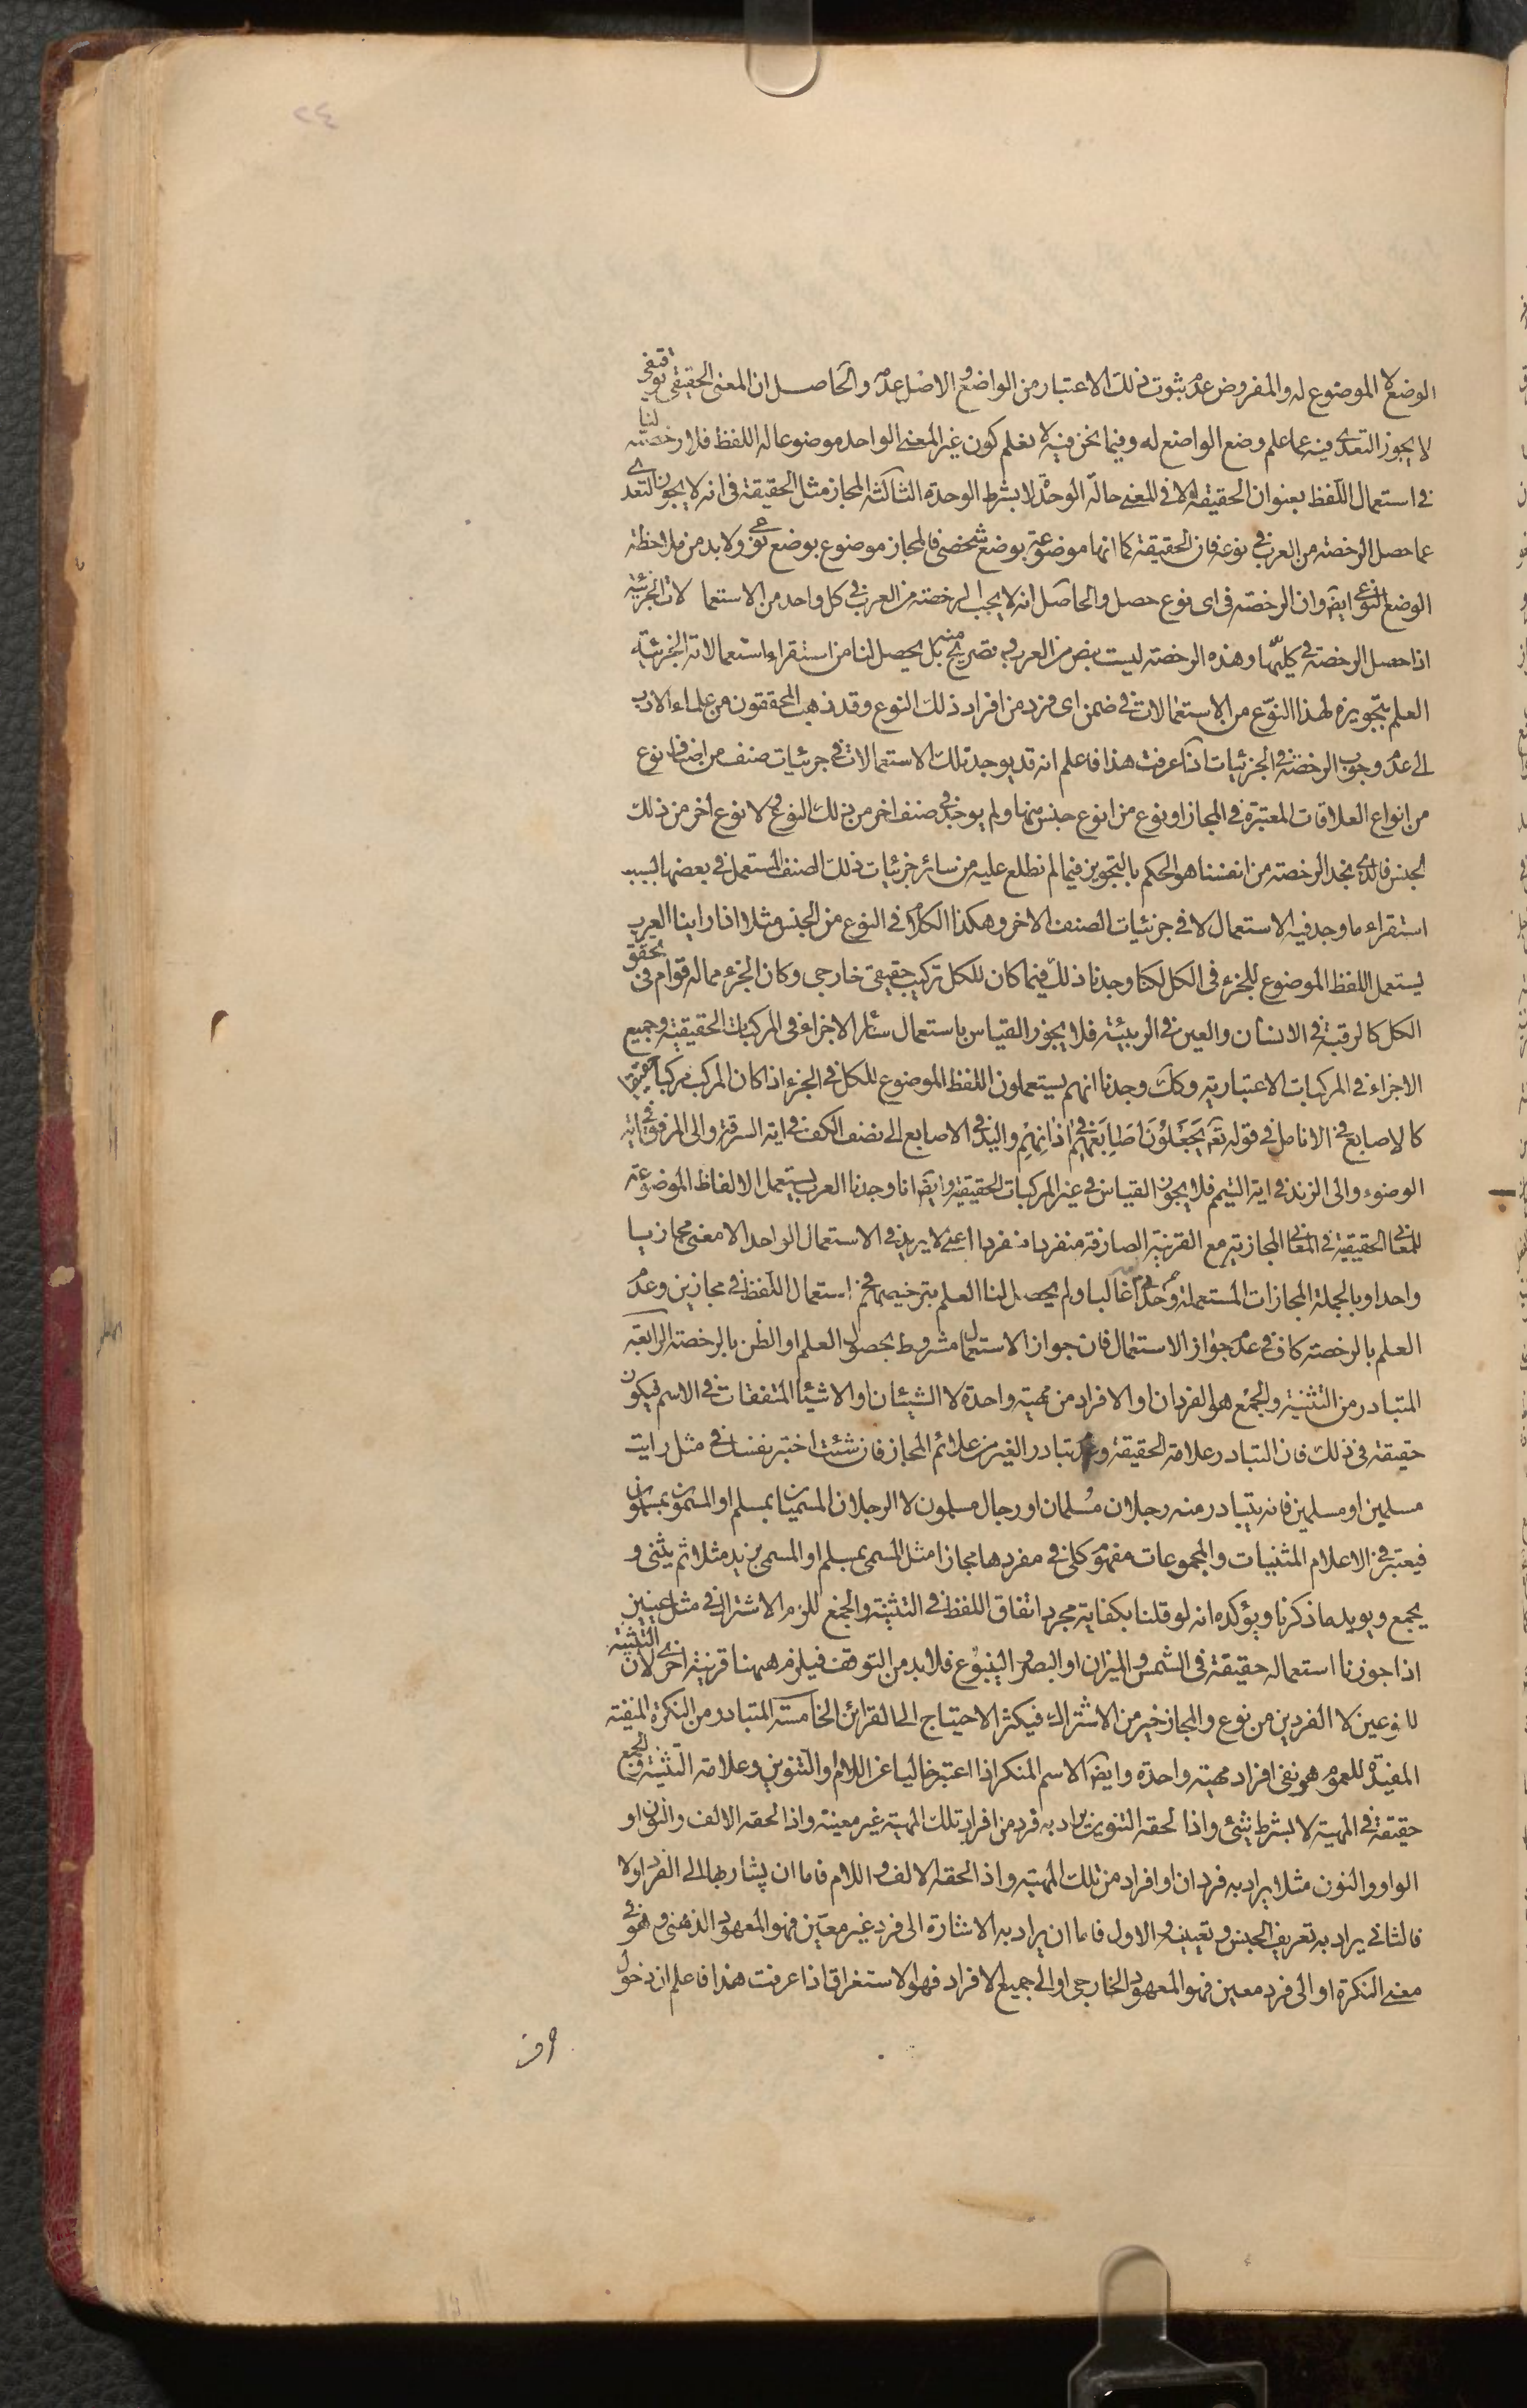 ٢٤
الوضع لا الموضوع له والمفروض عدم ثبوت ذلك الاعتبار من الواضع والاصل عدمه والحاصل ان المعنى الحقيقي توقيفي
لا يجوز التعدي فيه عما علم وضع الواضع له وفيما نحن فيه لا نعلم كون غير المعنى الواحد موضوعا له اللفظ فلا رخصة لنا
في استعمال اللفظ بعنوان الحقيقة الا في المعنى حالة الوحدة لا بشرط الوحدة الثالثة المجاز مثل الحقيقة في انه لا يجوز التعدي
عما حصل الرخصة من العرب في نوعه فان الحقيقة كما انها موضوعة بوضع شخصي فالمجاز موضوع بوضع نوعي ولا بد من ملاحظة
الوضع النوعي ايضه وان الرخصة في اي نوع حصل والحاصل انه لا يجب الرخصة من العرب في كل واحد من الاستعمالات الجزئية
اذا حصل الرخصة في كليتها وهذه الرخصة ليست بنص من العرب و تصريح منه بل يحصل لنا من استقراء استعمالاته الجزئية
العلم بتجويزه لهذا النوع من الاستعمالات في ضمن اي فرد من افراد ذلك النوع وقد ذهب المحققون من علماء الادب
الى عدم وجوب الرخصة في الجزئيات اذا عرفت هذا فاعلم انه قد يوجد تلك الاستعمالات في جزئيات صنف من اصناف نوع
من انواع العلاقات المعتبرة في المجاز او نوع من انوع جنس منها ولم يوجد في صنف اخر من ذلك النوع ولا نوع اخر من ذلك
الجنس فالذي نجد الرخصة من انفسنا هو الحكم بالتجويز فيما لم نطلع عليه من سائر جزئيات ذلك الصنف المستعمل في بعضها بسبب
استقراء ما وجد فيه الاستعمال لا في جزئيات الصنف الاخر وهكذا الكلام في النوع من الجنس مثلا اذا راينا العرب
يستعمل اللفظ الموضوع للجزء في الكل لكنا وجدنا ذلك فيما كان للكل تركيب حقيقي خارجي وكان الجزء مما له قوام في تحقق
الكل كالرقبة في الانسان والعين في الربيئة فلا يجوز القياس باستعمال سائر الاجزاء في المركبات الحقيقية وجميع
الاجزاء في المركبات الاعتبارية وكك وجدنا انهم يستعملون اللفظ الموضوع للكل في الجزء اذا كان المركب مركبا حقيقيا
كالاصابع في الانامل في قوله تعه يَجعَلُونَ اَصَابِعَهُم في اذانِهِم واليد في الاصابع الى نصف الكف في اية السرقة والى المرفق في اية
الوضوء والى الزند في اية التيمم فلا يجوز القياس في غير المركبات الحقيقية وايضه انا وجدنا العرب يستعمل الالفاظ الموضوعة
للمعاني الحقيقية في المعاني المجازية مع القرينة الصارفة منفردا منفردا اعني لا يريد في الاستعمال الواحد الا معنى مجازيا
واحدا وبالجملة المجازات المستعملة وحداني غالبا ولم يحصل لنا العلم بترخيصهم في استعمال اللفظ في مجازين وعدم
العلم بالرخصة كاف في عدم جواز الاستعمال فان جواز الاستعمال مشروط بحصول العلم او الظن بالرخصة الرابعة
المتبادر من التثنية والجمع هو الفردان او الافراد من مهية واحدة لا الشيئان او الاشياء المتفقات في الاسم فيكون
حقيقة في ذلك فان التبادر علامة الحقيقة و تبادر الغير من علائم المجاز فان شئت اختبر نفسك في مثل رايت
مسلمين او مسلمين فانه يتبادر منه رجلان مُسلمان او رجال مسلمون لا الرجلان المسميان بمسلم او المسمون بمسلمون
فيعتبر في الاعلام المثنيات والمجموعات مفهوم كلي في مفردها مجازا مثل المسمى بمسلم او المسمى بزيد مثلا ثم يثنى و
يجمع ويويد ما ذكرنا ويؤكده انه لو قلنا بكفاية مجرد اتفاق اللفظ في التثنية والجمع للزم الاشتراك في مثل عينين
اذا جوزنا استعماله حقيقة في الشمس والميزان او البصر والينبوع فلا بد من التوقف فيلزم ههنا قرينة اخرى لان التثنية
للنوعين لا الفردين من نوع والمجاز خير من الاشتراك فيكثر الاحتياج الى القرائن الخامسة المتبادر من النكرة المنفية
المفيدة للعموم هو نفي افراد مهية واحدة وايضه الاسم المنكر اذا اعتبر خاليا عن اللام والتنوين وعلامة التثنية والجمع
حقيقة في المهية لا بشرط شئ واذا لحقه التنوين يراد به فرد من افراد تلك المهية غير معينة واذا لحقه الالف والنون او
الواو والنون مثلا يراد به فردان او افراد من تلك المهية واذا لحقه الالف واللام فاما ان يشار بها الى الفرد اولا
فالثاني يراد به تعريف الجنس وتعيينه والاول فاما ان يراد به الاشارة الى فرد غير معين فهو المعهود الذهني وهو في
معنى النكرة او الى فرد معين فهو المعهود الخارجي او الى جميع الافراد فهو الاستغراق اذا عرفت هذا فاعلم ان دخول